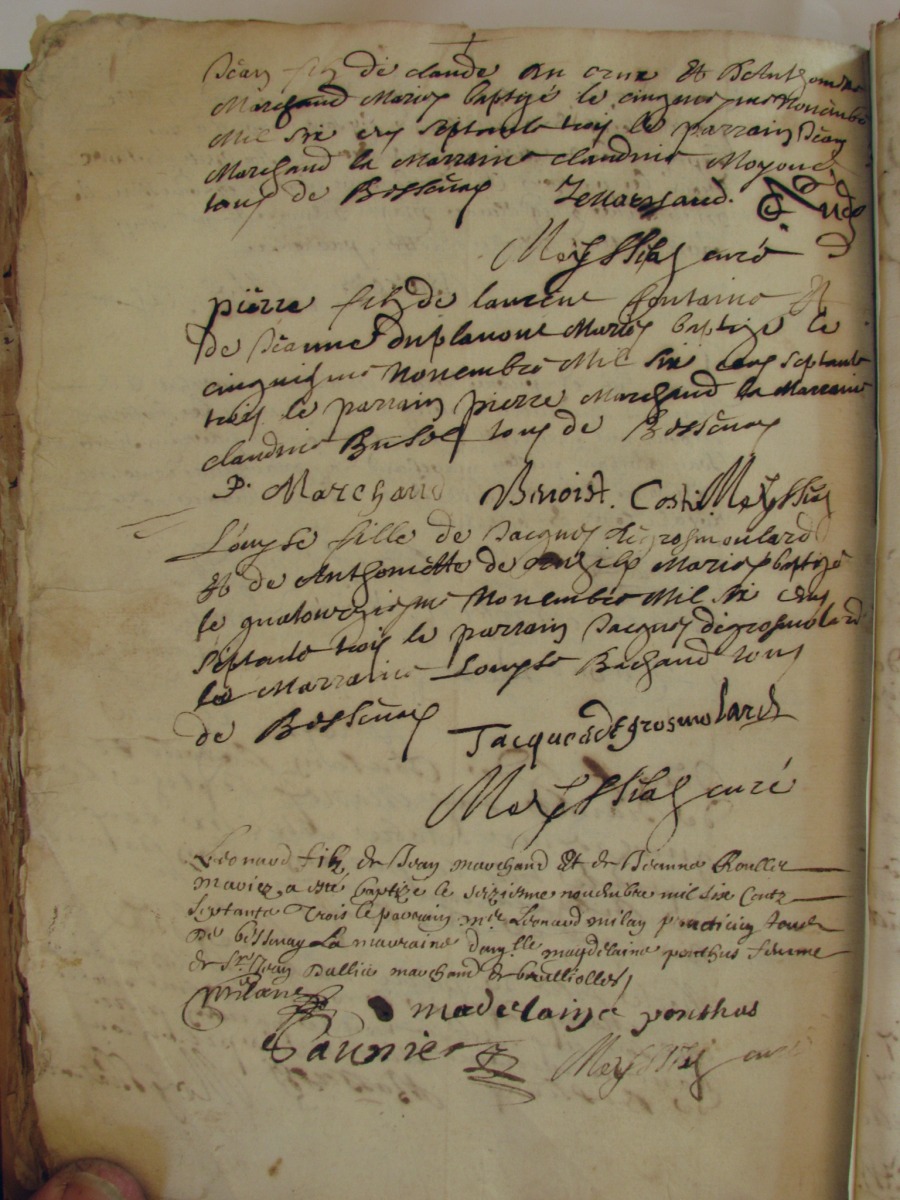 Jean filz de claude du crux Et D'Anthoinette
Marchand Mariez baptizé le cinquiesme Novembre
Mil six cens septante trois le parrain Jean
Marchand la Marraine claudine
tous de Bessenay J Marchand.
Meyssiat curé
pierre filz de laurent fontaine Et
de Jeanne duplanout Mariez baptizé le
cinquiesme Novembre Mil six cens septante
trois le parrain pierre Marchand la Marraine
claudine tous de Bessenay
P. Marchand Benoist. Coste. Meyssiat
Louyse fille de Jacques degrosmoulard
Et de Anthoinette de Mariez baptizé
le quatourziesme Novembre Mil six cens
septante trois le parrain Jacques degrosmolard
la Marraine Louyse Bachaud tous
de Bessenay
Jacques degrosmolard
Meyssiat curé
Leonard filz de Jean marchand Et de Jeanne Roullet
mariez a esté baptizé le seiziesme novembre mil six Centz
septante Trois le parrain mre Leonard milan praticien tous
De bessenay La marraine damlle magdelaine ponthus femme
de Sr Jean Dallier marchand de brulliolles
milan
madelaine ponthus
Saunier Meyssiat curé